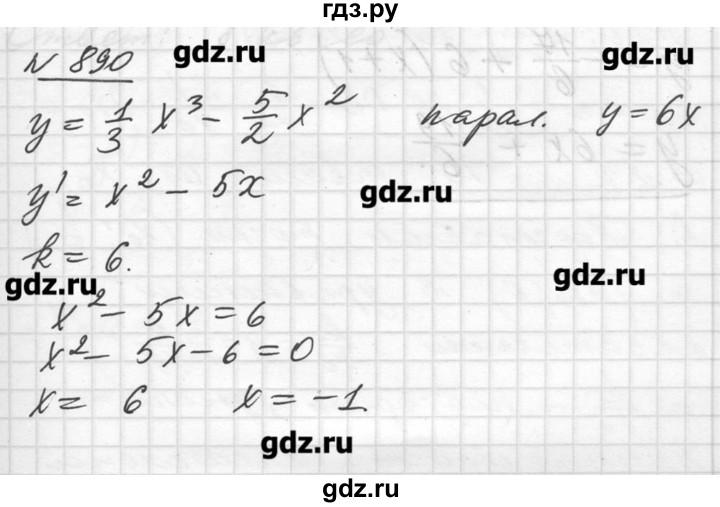 гдз.ру
№ 890 gdz.ru gdz.ru
y = 1/3 x³ - 5/2 x² парал. y = 6x
y' = x² - 5x gdz.ru
k = 6. gdz.ru
gdz.ru
x² - 5x = 6
x² - 5x - 6 = 0
x = 6 x = -1
gdz.ru
gdz.ru